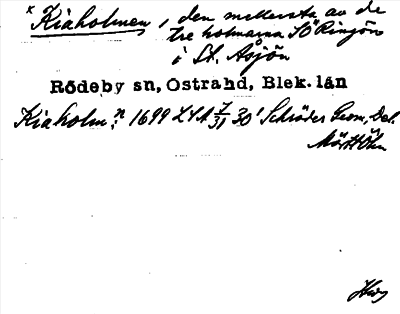 x Kiaholmen, den mellersta av de
tre holmarna SO Ringön
i St. Åsjön
Rödeby sn, Östrahd, Blek. län
Kiaholm n: 1699 LSA 7/31 30' Schröder Geom, Del.